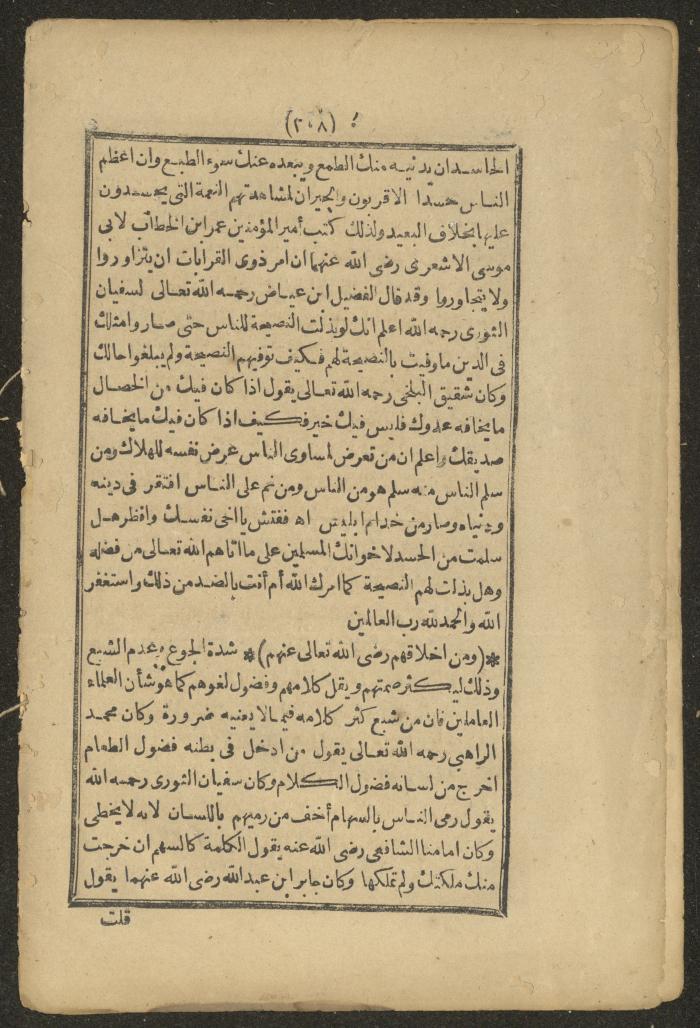 (٢٠٨)
الحاسدان يدنيه منك الطمع ويبعده عنك سوء الطبع وان اعظم
الناس حسدا الاقربون والجيران لمشاهدتهم النعمة التي يحسدون
عليها بخلاف البعيد ولذلك كتب أمير المؤمنين عمر ابن الخطاب لابى
موسى الاشعرى رضى الله عنهما ان امر ذوى القرابات ان يتزاوروا
ولا يتجاوروا وقد قال الفضيل ابن عياض رحمه الله تعالى لسفيان
الثورى رحمه الله اعلم انك لو بذلت النصيحة للناس حتى صاروا مثلك
فى الدين ما وفيت بالنصيحة لهم فكيف توفيهم النصيحة ولم يبلغوا حالك
وكان شقيق البلخى رحمه الله تعالى يقول اذا كان فيك من الخصال
ما يخافه عدوك فليس فيك خير فكيف اذا كان فيك ما يخافه
صديقك واعلم ان من تعرض لمساوى الناس عرض نفسه للهلاك ومن
سلم الناس منه سلم هو من الناس ومن نم على الناس افتقر فى دينه
ودنياه وصار من خدام ابليس اه ففتش يا اخى نفسك وانظر هل
سلمت من الحسد لاخوانك المسلمين على ما اتاهم الله تعالى من فضله
وهل بذلت لهم النصيحة كما امرك الله أم أنت بالضد من ذلك واستغفر
الله والحمد لله رب العالمين
*(ومن اخلاقهم رضى الله تعالى عنهم)* شدة الجوع وعدم الشبع
وذلك ليكثر صمتهم ويقل كلامهم وفضول لغوهم كما هو شأن العلماء
العاملين فان من شبع كثر كلامه فيما لا يعنيه ضرورة وكان محمد
الراهبى رحمه الله تعالى يقول من ادخل فى بطنه فضول الطعام
اخرج من لسانه فضول الكلام وكان سفيان الثورى رحمه الله
يقول رمى الناس بالسهام أخف من رميهم باللسان لانه لا يخطى
وكان امامنا الشافعى رضى الله عنه يقول الكلمة كالسهم ان خرجت
منك ملكتك ولم تملكها وكان جابر ابن عبد الله رضى الله عنهما يقول
قلت